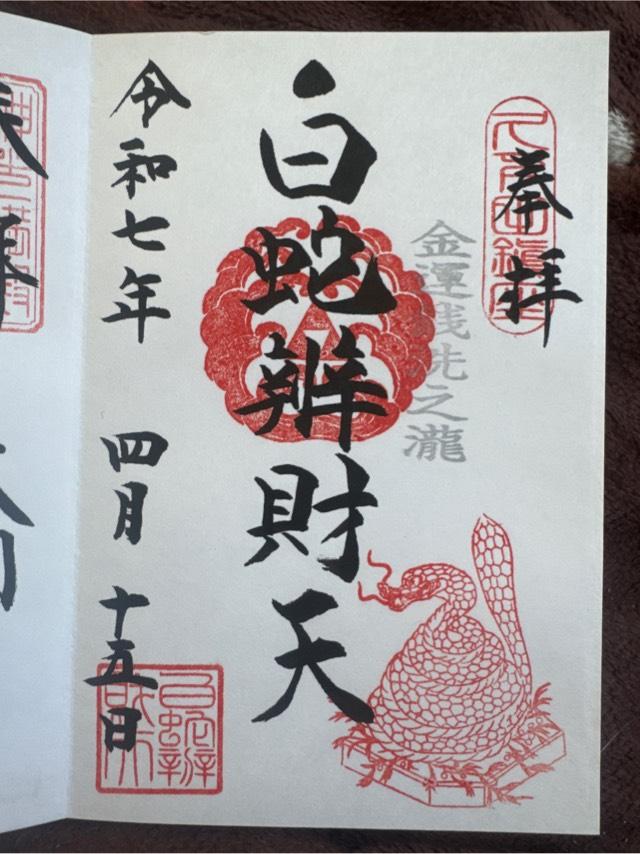 奉拝
金運銭洗之瀧
白蛇辨財天
令和七年 四月 十五日